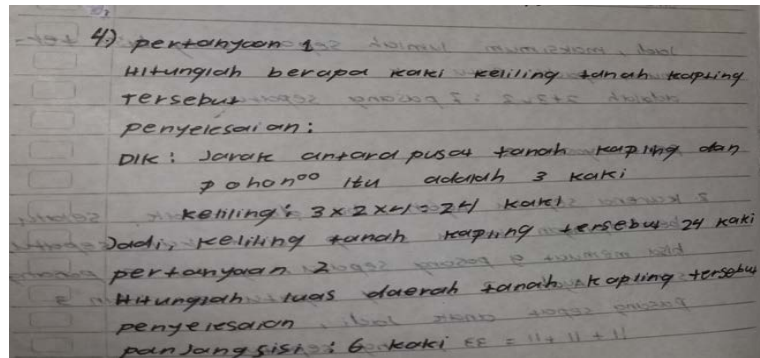 4.) pertanyaan 1
Hitunglah berapa kaki keliling tanah kapling
tersebut
penyelesaian :
DIK : Jarak antara pusat tanah kapling dan
pohon itu adalah 3 kaki
keliling : 3 x 2 x 4 = 24 kaki
Jadi, keliling tanah kapling tersebut 24 kaki
pertanyaan 2
Hitunglah luas daerah tanah kapling tersebut
penyelesaian
panjang sisi : 6 kaki